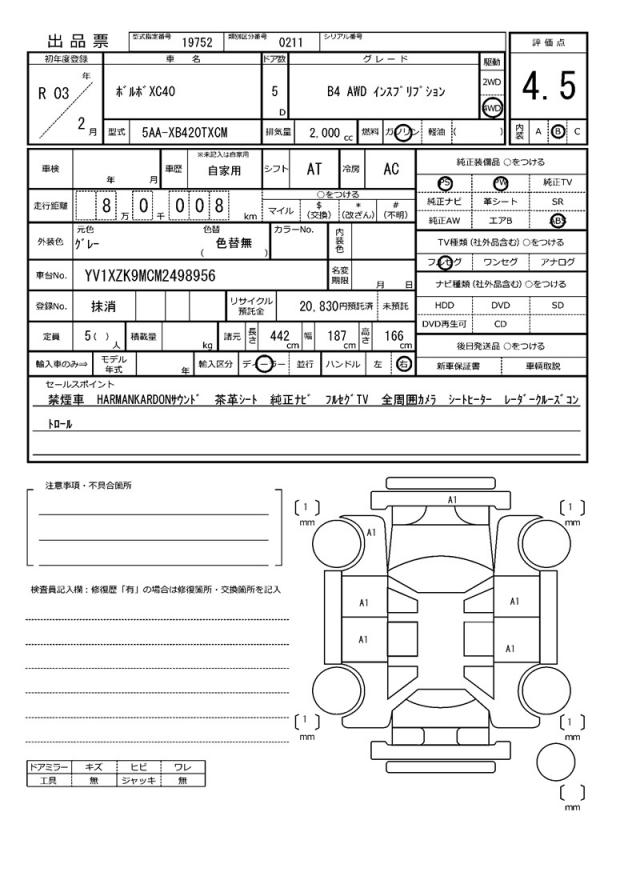 出品票 型式指定番号 19752 類別区分番号 0211 シリアル番号
評価点
4.5
初年度登録 車 名 ドア数 グレード 駆動
R 03 年 2 月
ボルボXC40
5 D
B4 AWD インスプリプション
2WD
4WD
型式 5AA-XB420TXCM 排気量 2,000 cc 燃料 ガソリン 軽油 ( )
内装 A B C
車検 年 月 車歴 ※未記入は自家用 自家用 シフト AT 冷房 AC
走行距離 8 万 0 千 0 0 8 km
○をつける
マイル $(交換) *(改ざん) #(不明)
外装色 元色 グレー 色替 色替無 ( ) カラーNo. 内装色
車台No. YV1XZK9MCM2498956 名変期限 月 日
登録No. 抹消 リサイクル預託金 20,830円預託済 未預託
定員 5( )人 積載量 kg 諸元 長さ 442 cm 幅 187 cm 高さ 166 cm
輸入車のみ⇒ モデル年式 年 輸入区分 ディーラー 並行 ハンドル 左 右
純正装備品 ○をつける
PS PW 純正TV
純正ナビ 革シート SR
純正AW エアB ABS
TV種類 (社外品含む) ○をつける
フルセグ ワンセグ アナログ
ナビ種類 (社外品含む) ○をつける
HDD DVD SD
DVD再生可 CD
後日発送品 ○をつける
新車保証書 車輌取説
セールスポイント
禁煙車 HARMANKARDONサウンド 茶革シート 純正ナビ フルセグTV 全周囲カメラ シートヒーター レーダークルーズコン
トロール
注意事項・不具合箇所
検査員記入欄：修復歴「有」の場合は修復箇所・交換箇所を記入
ドアミラー キズ ヒビ ワレ
工具 無 ジャッキ 無
A1
[ 1 ] mm
[ 1 ] mm
A1
A1
A1
A1
A1
[ 1 ] mm
[ 1 ] mm
[ ] mm